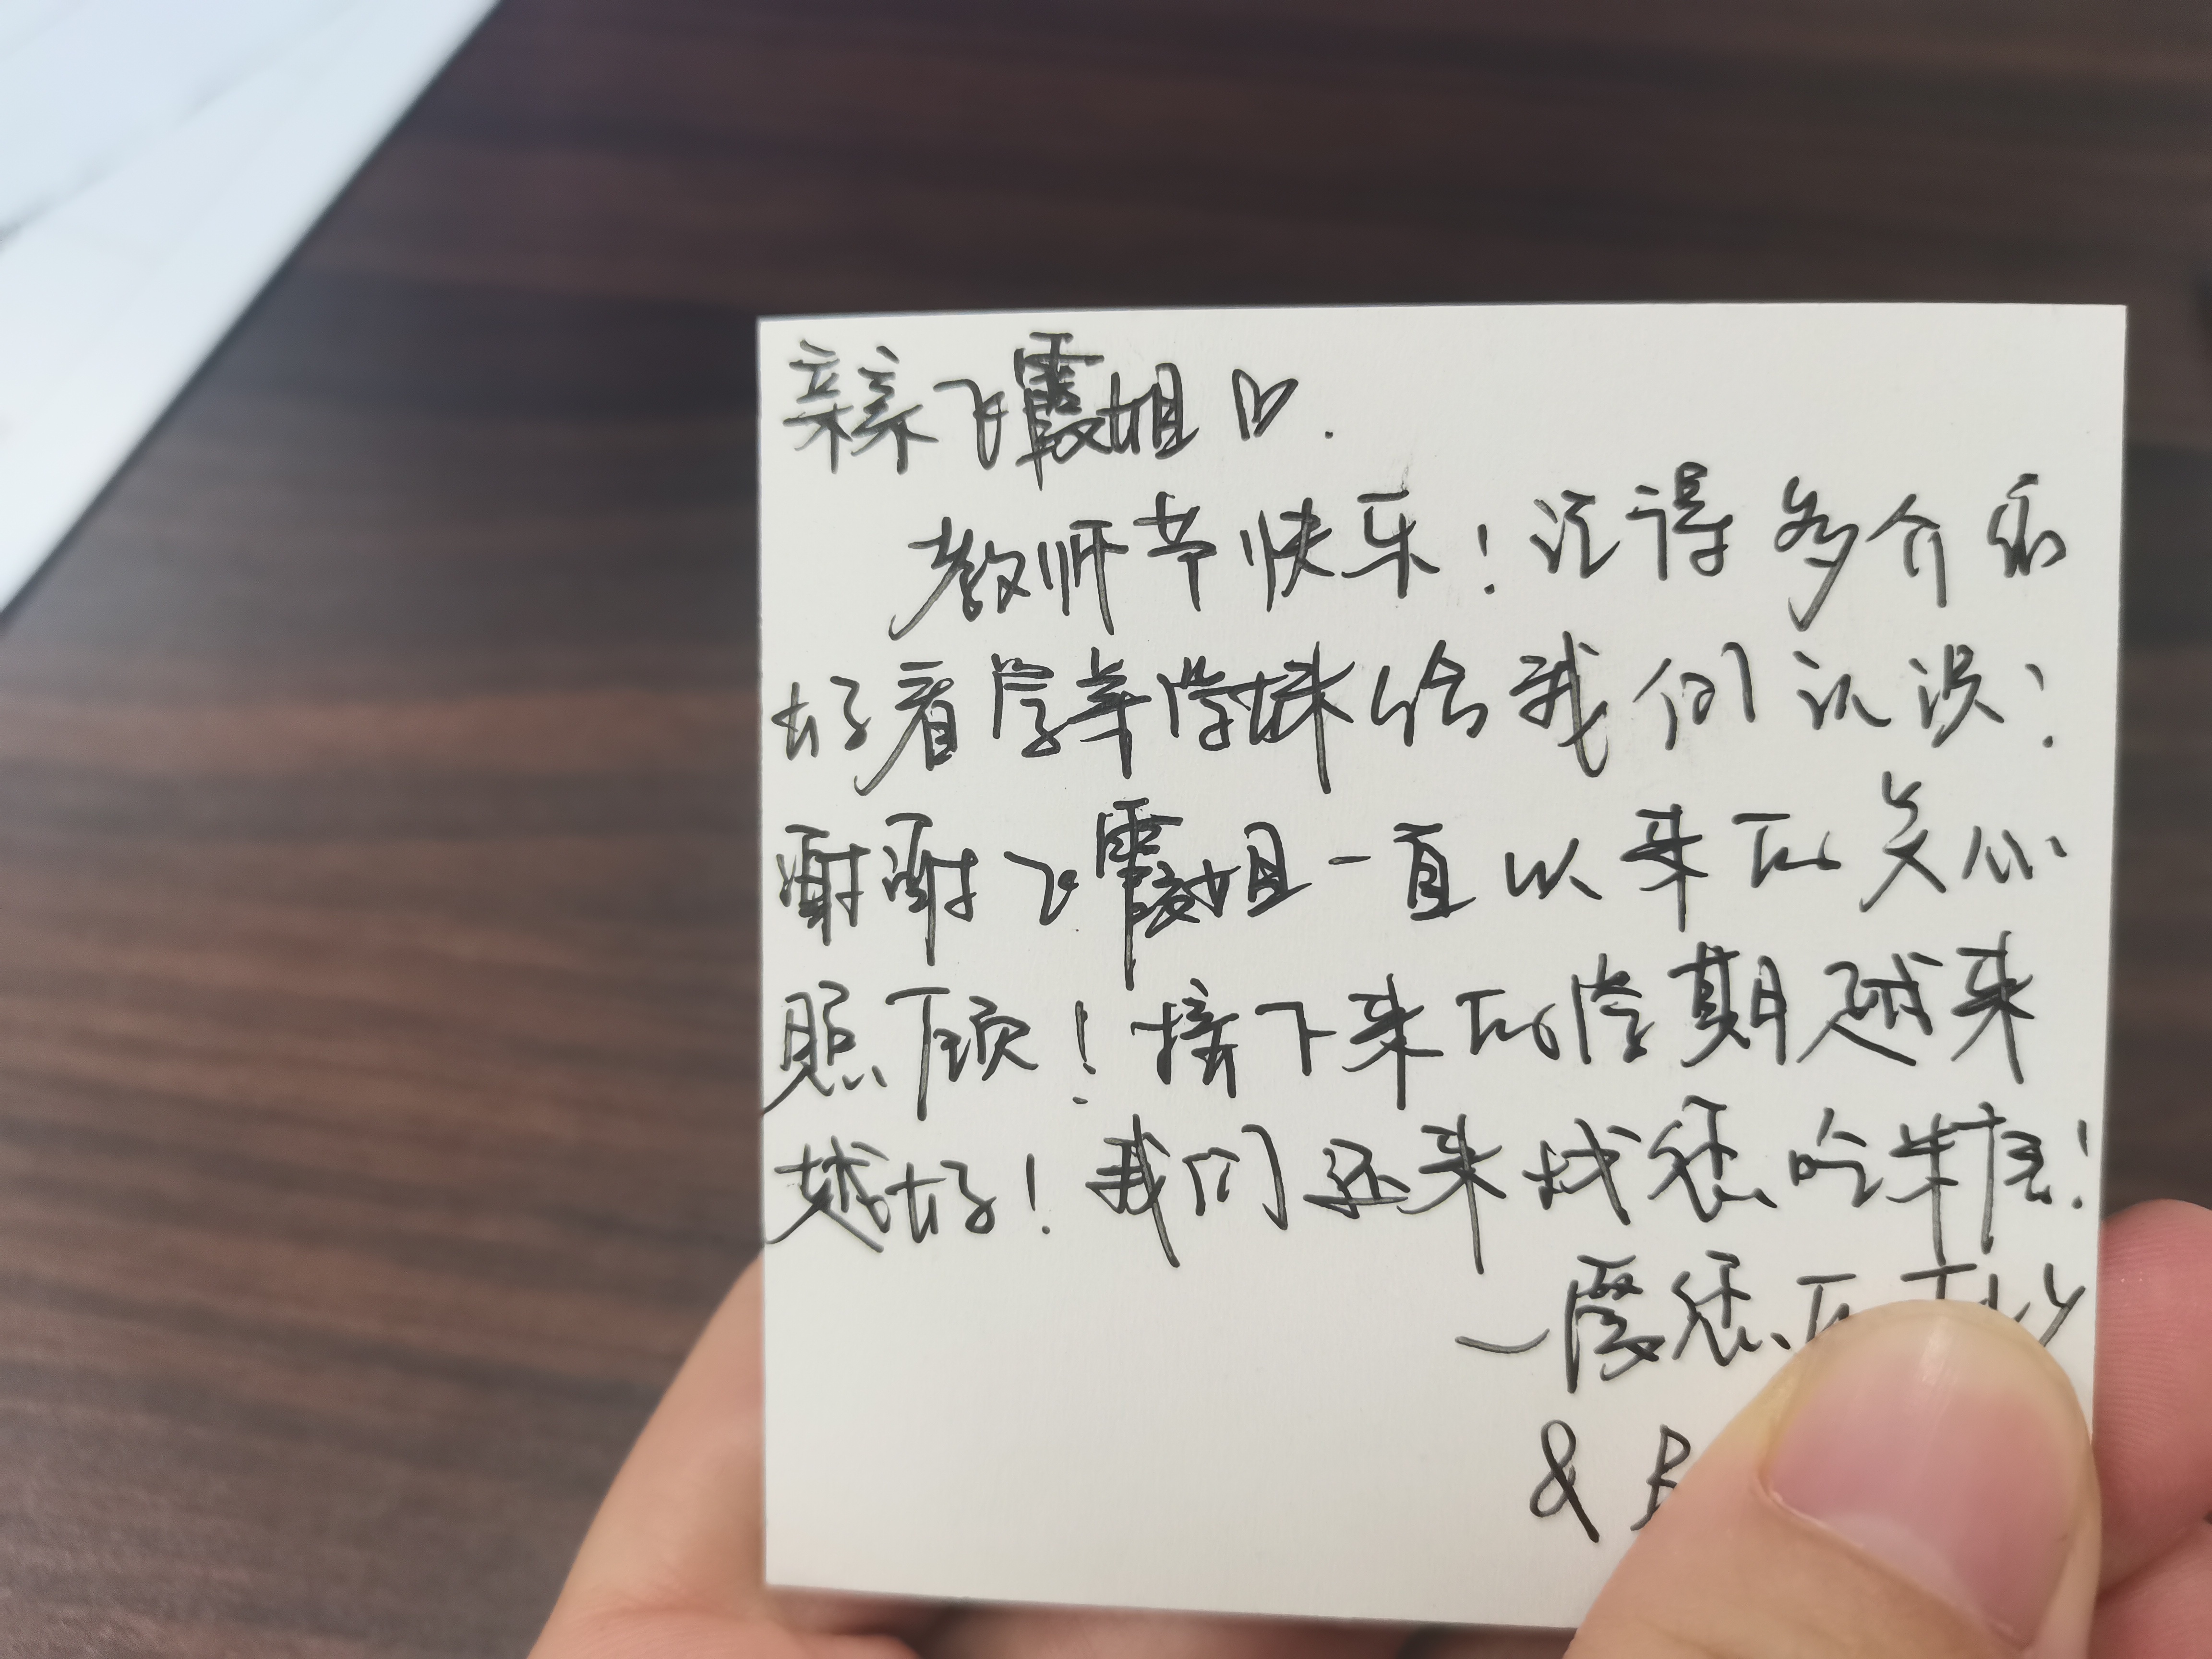 亲亲飞霞姐♡.
教师节快乐!记得多介绍
好看学弟学妹给我们认识!
谢谢飞霞姐一直以来的关心
照顾!接下来的学期越来
越好!我们还来找您吃米糕!
—爱您的
& B